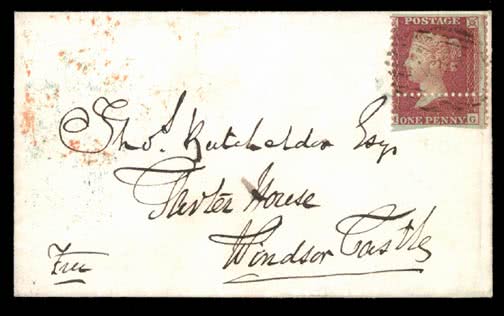 POSTAGE
ONE PENNY
G
Thos. Batcheldor Esq
Cloister House
Windsor Castle
Free